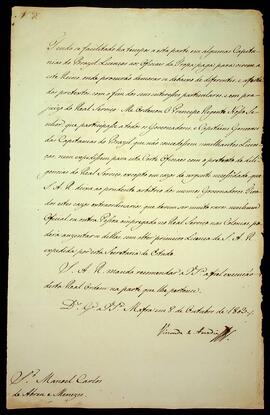 Tendo se facilitado ha tempos a esta parte em algumas Capita-
nias do Brazil Licenças aos Officiaes de Tropa paga para virem a
este Reino, onde procurão demorar-se debaixo de differentes, e affecta-
dos pretextos, com o fim dos seus interesses particulares, e com pre-
juizo do Real Serviço: Me Ordenou O Principe Regente Nosso Se-
nhor que participasse a todos os Governadores, e Capitaens Generaes
das Capitanias do Brazil, que não concedessem semelhantes Licen-
ças, nem expedissem para esta Corte Officiaes com o pretexto de deli-
gencias do Real Serviço excepto em cazo de urgente necessidade, que
S. A. R. deixa ao prudente arbitrio dos mesmos Governadores. Fóra
destes cazos extraordinarios, que devem ser muito raros, nenhum
Official, ou outra Pessoa empregada no Real Serviço nas Colonias, po-
derá auzentar-se dellas sem obter primeiro Licença de S. A. R.
expedida por esta Secretaria de Estado.
S. A. R. manda recomendar a V. S.ª a fiel execução
desta Real Ordem na parte que lhe pertence.
D.s G.e a V. S.ª Mafra em 8 de Outubro de 1803.
Visconde de Anadia
S.r Manoel Carlos
de Abreu e Menezes